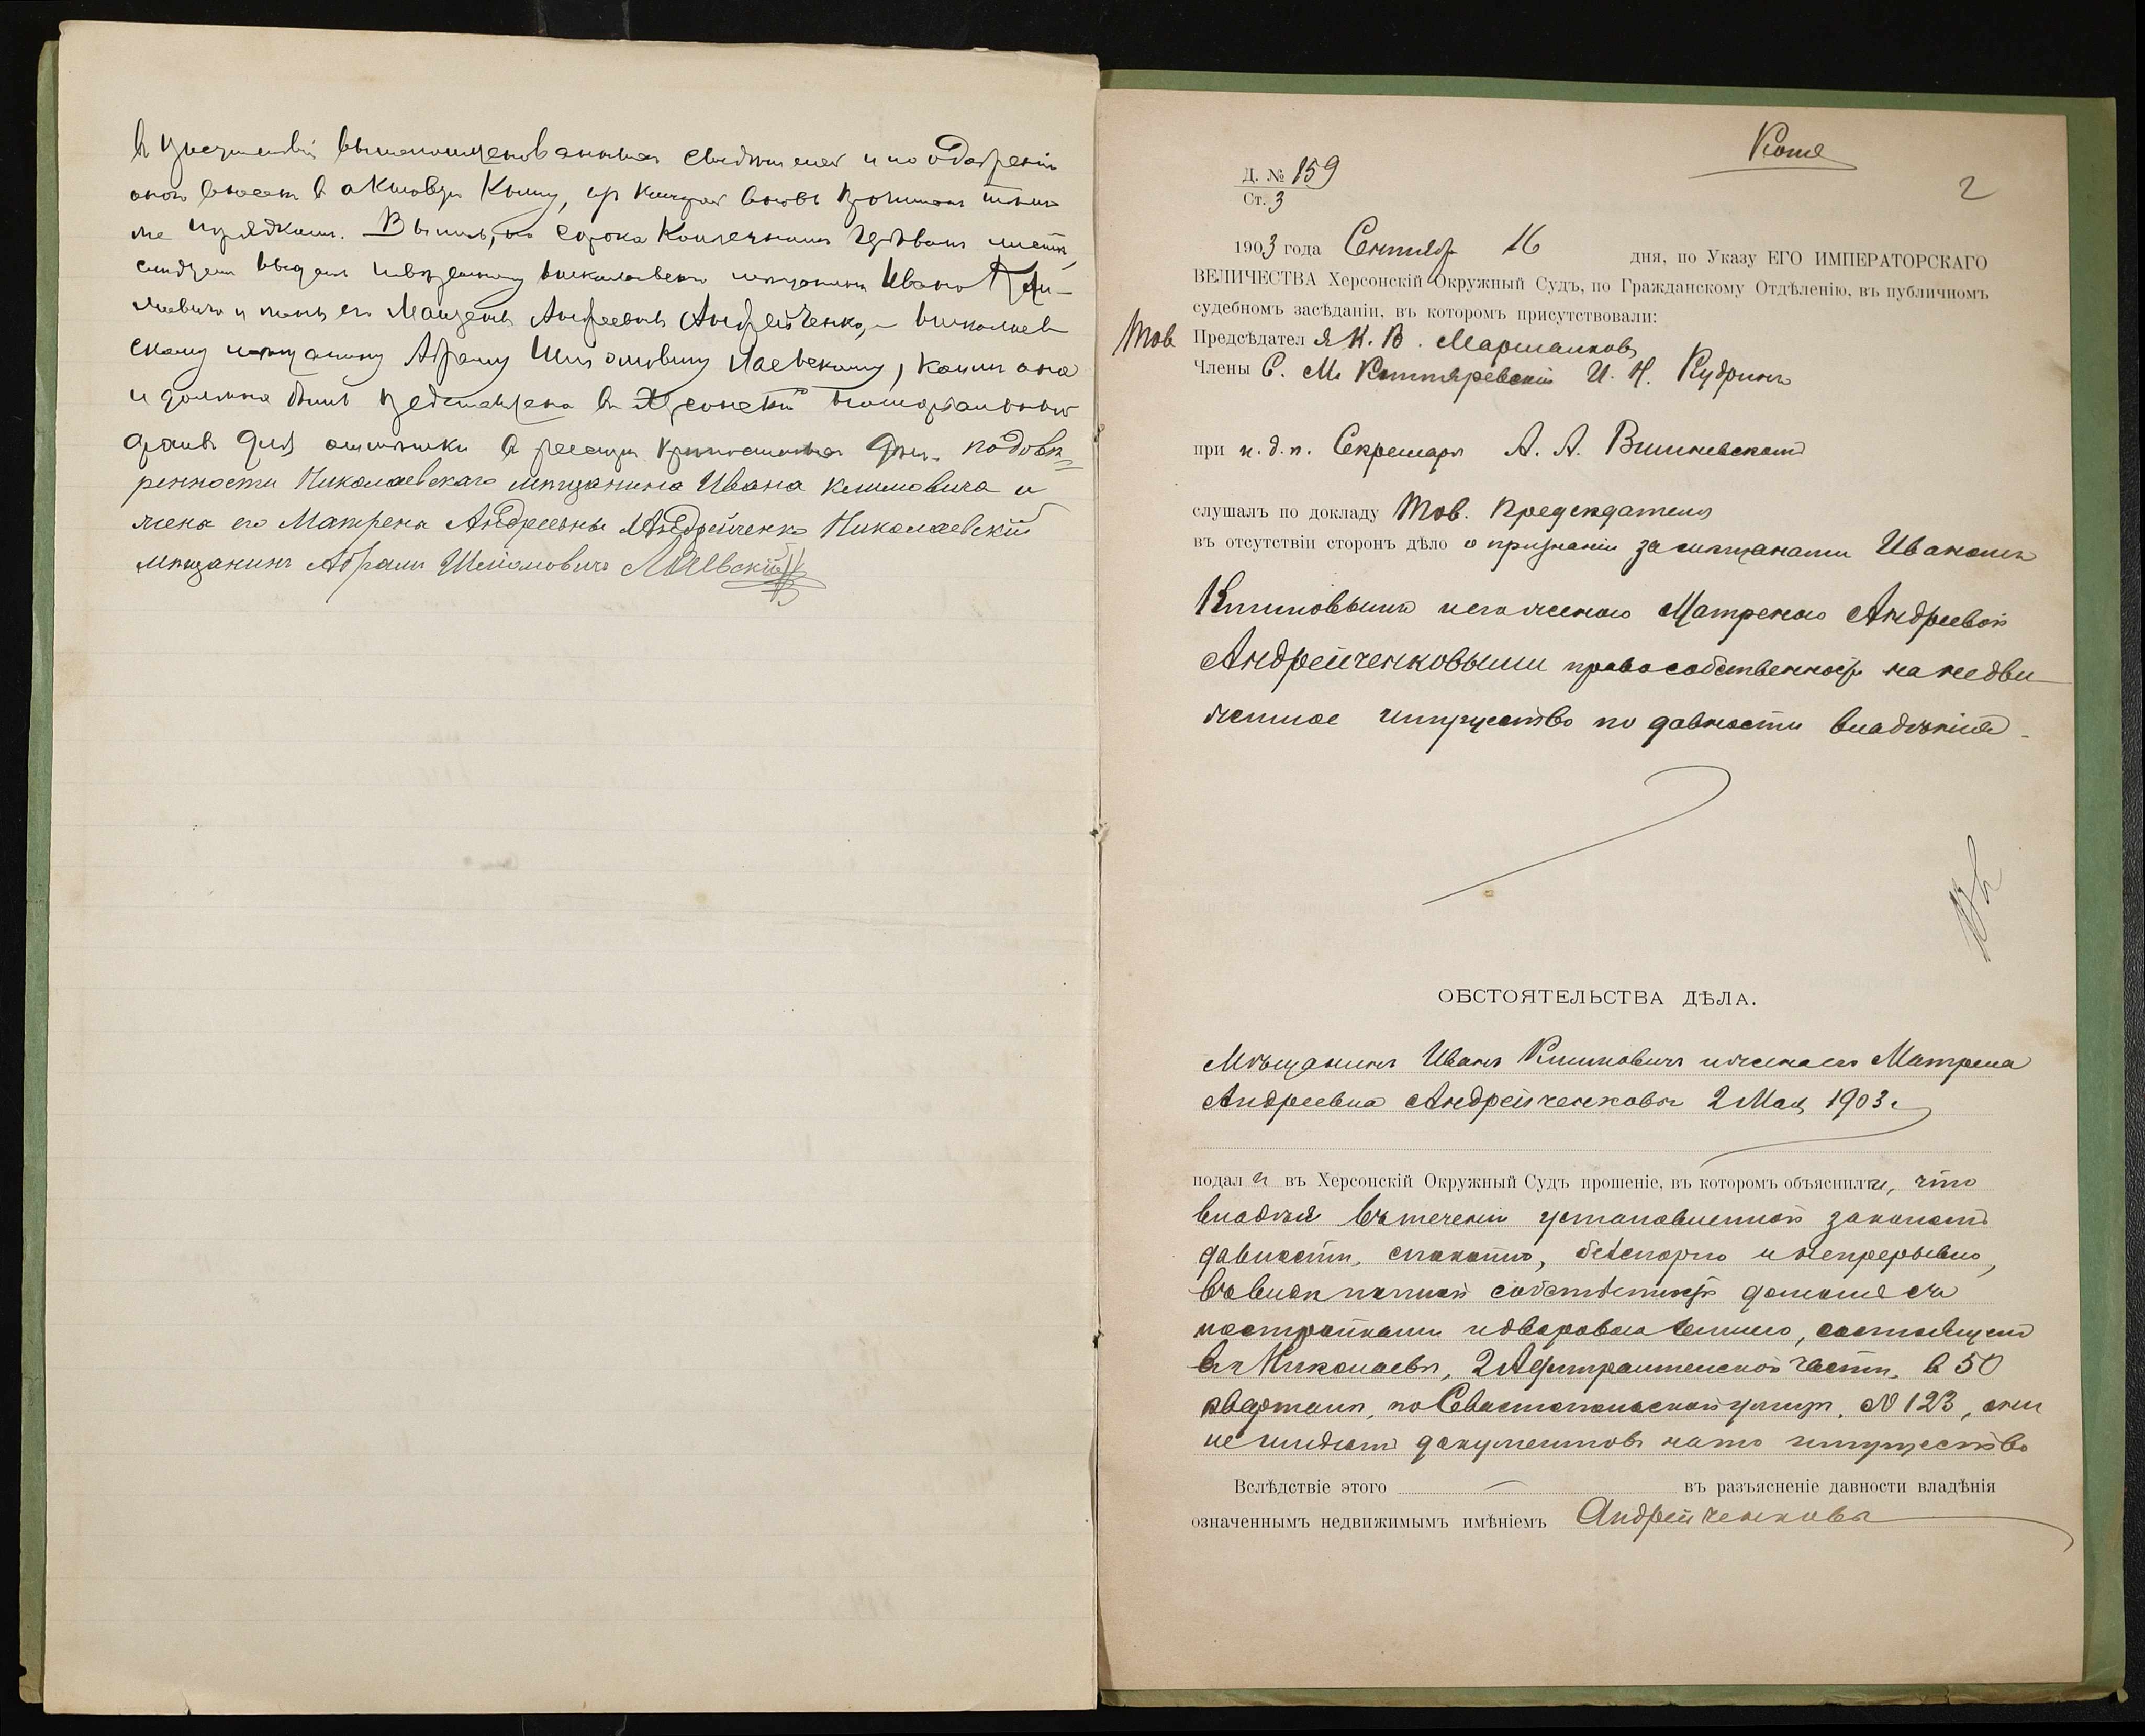 въ присутствіи вышепоименованныхъ свидѣтелей и по одобреніи
оной внесенъ въ актовую книгу, изъ которой вновь прочитанъ тѣмъ
же порядкомъ. Выпись, на сорока копѣечномъ гербовомъ листѣ,
слѣдуетъ выдать повѣренному николаевскаго мѣщанина Ивана Кли-
мовича и жены его Матрены Андреевны Андрейченко, – николаев
скому мѣщанину Абраму Шліомовичу Лаевскому, каковая она
и должна быть представлена въ Херсонскій нотаріальный
архивъ для отмѣтки въ реестрѣ крѣпостныхъ дѣлъ. по довѣ-
ренности Николаевскаго мѣщанина Ивана Климовича и
жена его Матрена Андреевны Андрейченко Николаевскій
мѣщанинъ Абрамъ Шліомовичъ Лаевскій
Копія
2
Д. № 159
Ст. 3
1903 года Сентября 16 дня, по Указу ЕГО ИМПЕРАТОРСКАГО
ВЕЛИЧЕСТВА Херсонскій Окружный Судъ, по Гражданскому Отдѣленію, въ публичномъ
судебномъ засѣданіи, въ которомъ присутствовали:
Тов. Предсѣдателя К. В.
Члены С. М. Котляревскій И. Н. Кудринъ
при и. д. п. Секретаря А. А. Вишневскомъ
слушалъ по докладу Тов. Предсѣдателя
въ отсутствіи сторонъ дѣло о признаніи за мѣщанами Иваномъ
Климовымъ и его женою Матреною Андреевой
Андрейченковыми право собственности на недви
жимое имущество по давности владѣнія.
ОБСТОЯТЕЛЬСТВА ДѢЛА.
Мѣщанинъ Иванъ Климовичъ и жена его Матрена
Андреевна Андрейченковы 2 Мая 1903 г.
подали въ Херсонскій Окружный Судъ прошеніе, въ которомъ объяснили, что
владѣя въ теченіи установленной закономъ
давности, спокойно, безспорно и непрерывно,
въ видѣ полной собственности домомъ съ
постройками и дворовою землею, состоящимъ
въ г. Николаевѣ, 2 Адмиралтейской части, въ 50
кварталѣ, по Севастопольской улицѣ, № 123, они
не имѣютъ документовъ на то имущество
Вслѣдствіе этого — въ разъясненіе давности владѣнія
означеннымъ недвижимымъ имѣніемъ Андрейченковы